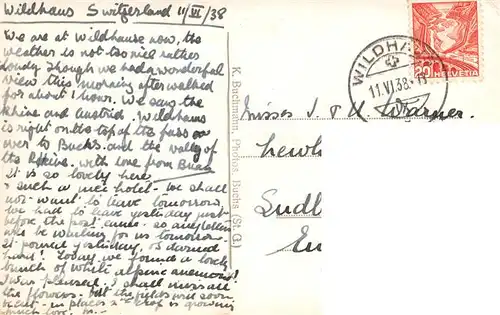 Wildhaus Switzerland 11/VI/38
We are at Wildhause now, the
weather is not too nice rather
cloudy though we had a wonderful
view this morning after walked
for about 1 hour. We say the
Rhine and Austria. Wildhaus
is right on the top of the pass
over to Buchs and the valley of
the Rhine. with love from Brian
It is so lovely here
& such a nice hotel - we shall
not want to leave tomorrow,
we had to leave yesterday just
before the post came - so any letters
will be waiting for us tomorrow.
It poured yesterday,
Today we found a lovely
bunch of white alpine anemones!
I was pleased. I shall miss all
the flowers - but the fields will soon
be cut - in places a 2nd crop is growing
much love. M -
K. Bachmann, Photos, Buchs (St. G.)
WILDHAUS
11.VI.38
20 HELVETIA
Misses J & M Warner
Newh
Ludl
En